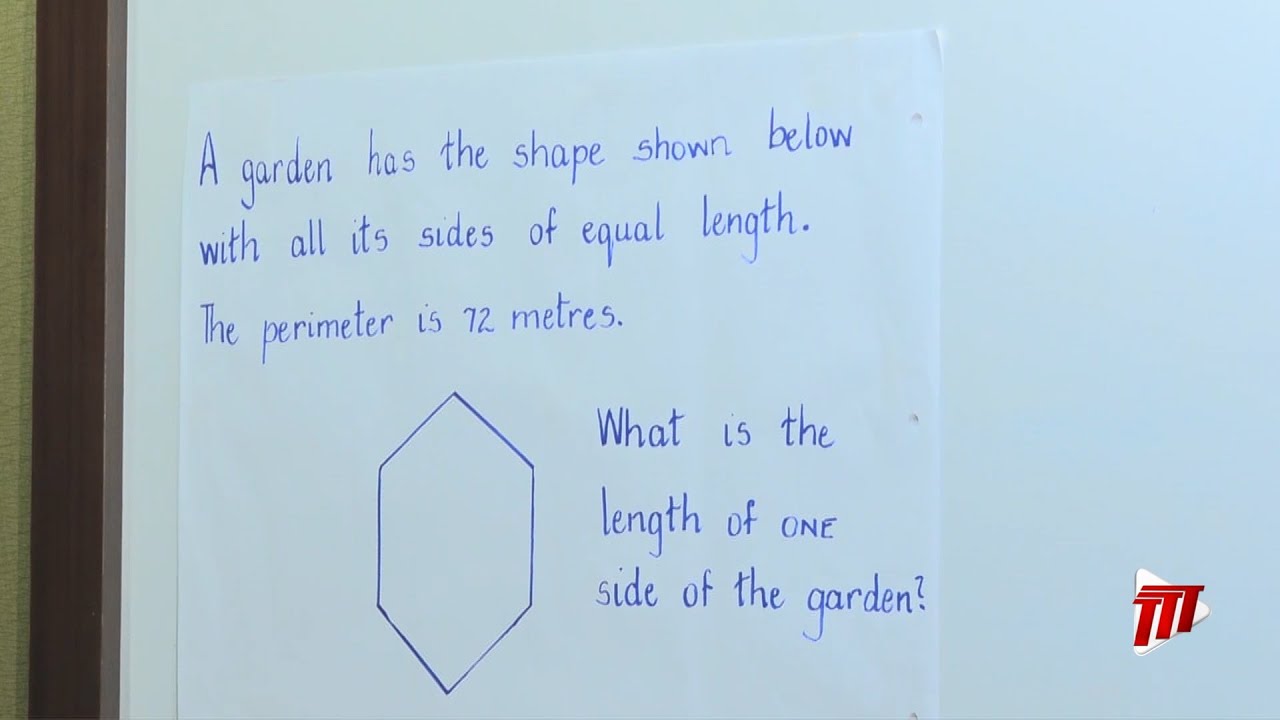 A garden has the shape shown below
with all its sides of equal length.
The perimeter is 72 metres.
What is the
length of ONE
side of the garden?
TTT